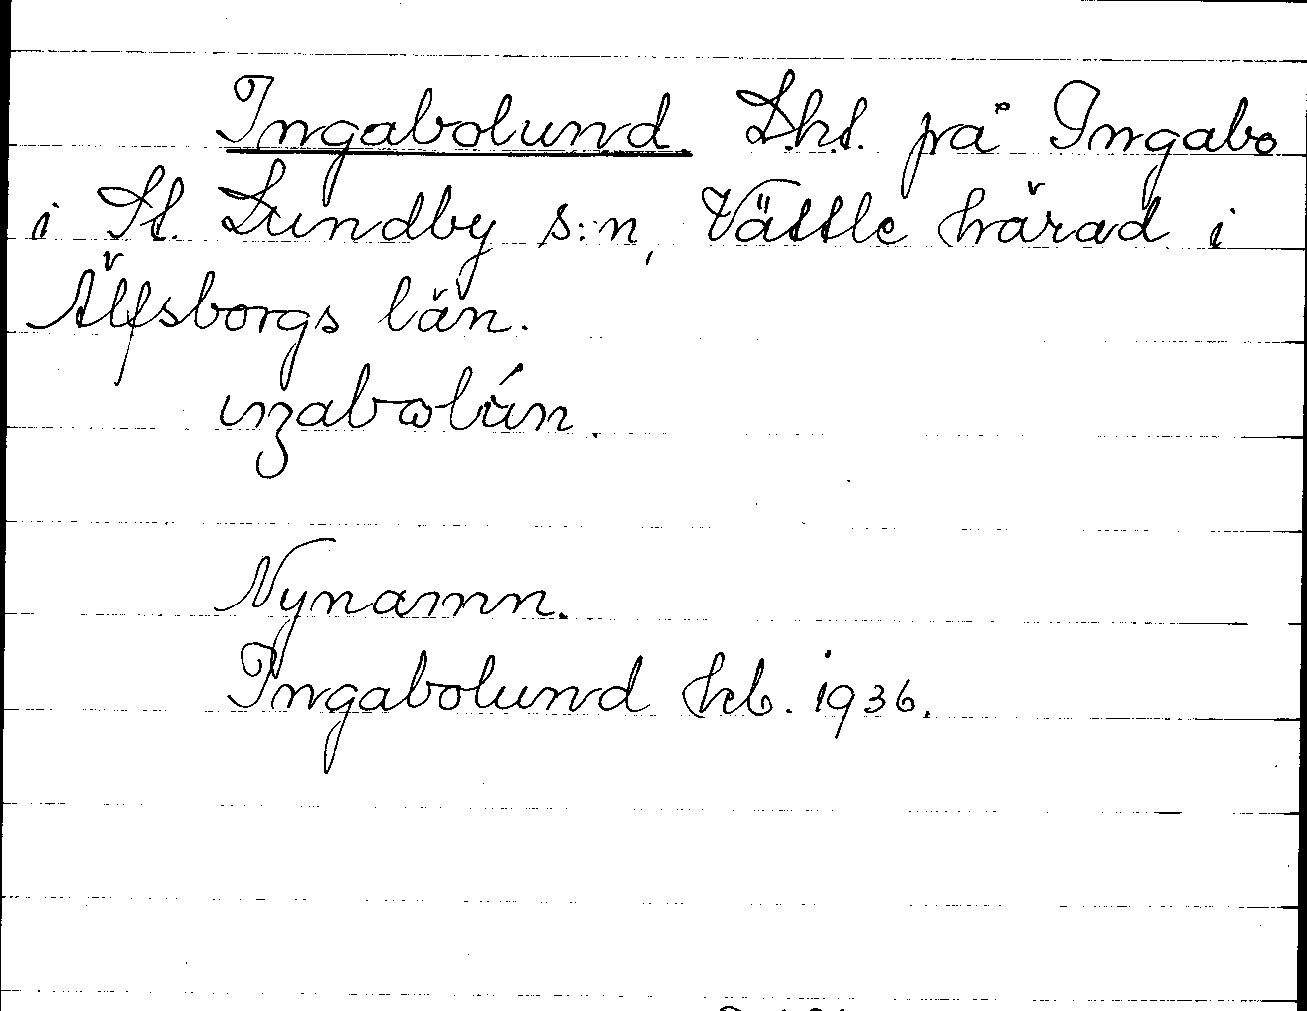 Ingabolund. Lht. på Ingabo
i St. Lundby s:n, Vättle härad i
Älfsborgs län.
Nynamn.
Ingabolund hfb. 1936.